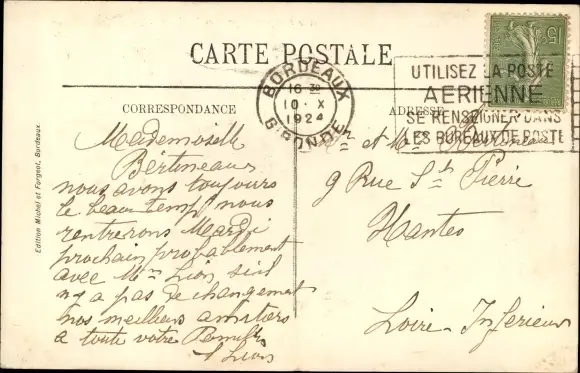 CARTE POSTALE
CORRESPONDANCE
ADRESSE
BORDEAUX
16 30
10 · X
1924
GIRONDE
UTILISEZ LA POSTE
AERIENNE
SE RENSEIGNER DANS
LES BUREAUX DE POSTE
15c
Mademoiselle
Bertineau
nous avons toujours
le beau temps nous
rentrerons Mardi
prochain probablement
avec Mme Lion s'il
n'y a pas de changement
nos meilleurs amitiers
a toute votre
Lion
Mr et Mme
9 Rue St Pierre
Nantes
Loire-Inferieure
Edition Michel et Forgeot, Bordeaux